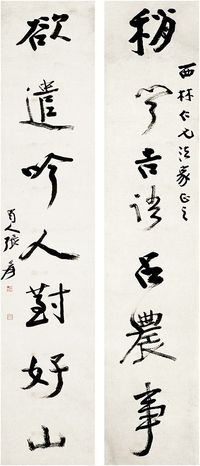 稍聞吉語占農事
西林仁兄法家正之
欲遣吟人對好山
蜀人張爰